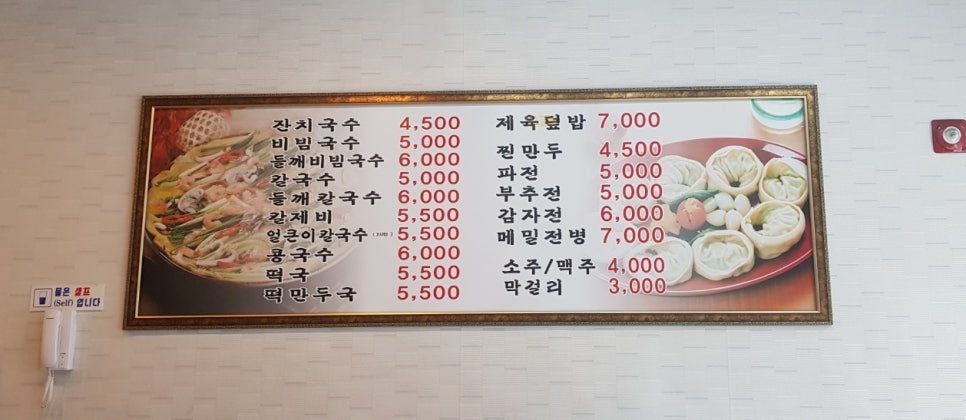 잔치국수 4,500
비빔국수 5,000
들깨비빔국수 6,000
칼국수 5,000
들깨칼국수 6,000
칼제비 5,500
얼큰이칼국수 5,500
콩국수 6,000
떡국 5,500
떡만두국 5,500
제육덮밥 7,000
찐만두 4,500
파전 5,000
부추전 5,000
감자전 6,000
메밀전병 7,000
소주/맥주 4,000
막걸리 3,000
물은 셀프
(Self) 입니다